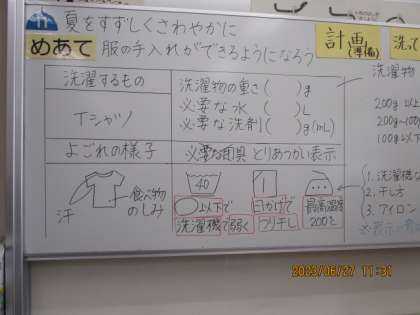 夏をすずしくさわやかに
めあて 服の手入れができるようになろう
計画
(準備)
洗って
洗濯するもの
洗濯物の重さ( )g
必要な水( )L
必要な洗剤( )g(mL)
Tシャツ
よごれの様子
必要な用具 とりあつかい表示
汗
食べ物
のしみ
40
○以下で
洗濯機で弱く
日かげで
つり干し
最高温度
200℃
洗濯物
200g以上
200g~100g
100g以下
1. 洗濯機
2. 干し方
3. アイロン
2023/06/27 11:31